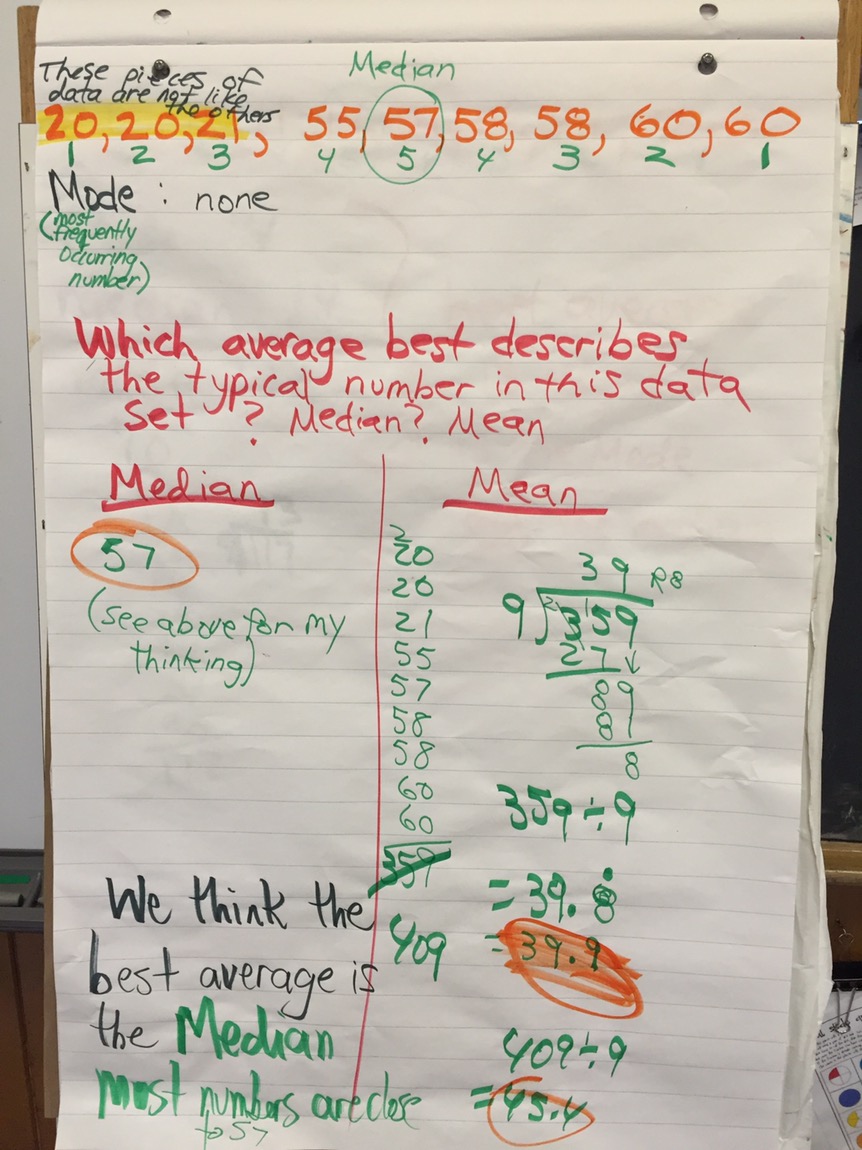 These pieces of
data are not like
the others
Median
20, 20, 21, 55, 57, 58, 58, 60, 60
1 2 3 4 5 4 3 2 1
Mode : none
(most
frequently
occurring
number)
Which average best describes
the typical number in this data
set? Median? Mean
Median
57
(see above for my
thinking)
Mean
2
20
20
21
55
57
58
58
60
60
359
409
39 R8
9 359
27
89
81
8
359÷9
= 39.8
= 39.9
409÷9
= 45.4
We think the
best average is
the Median
Most numbers are close
to 57